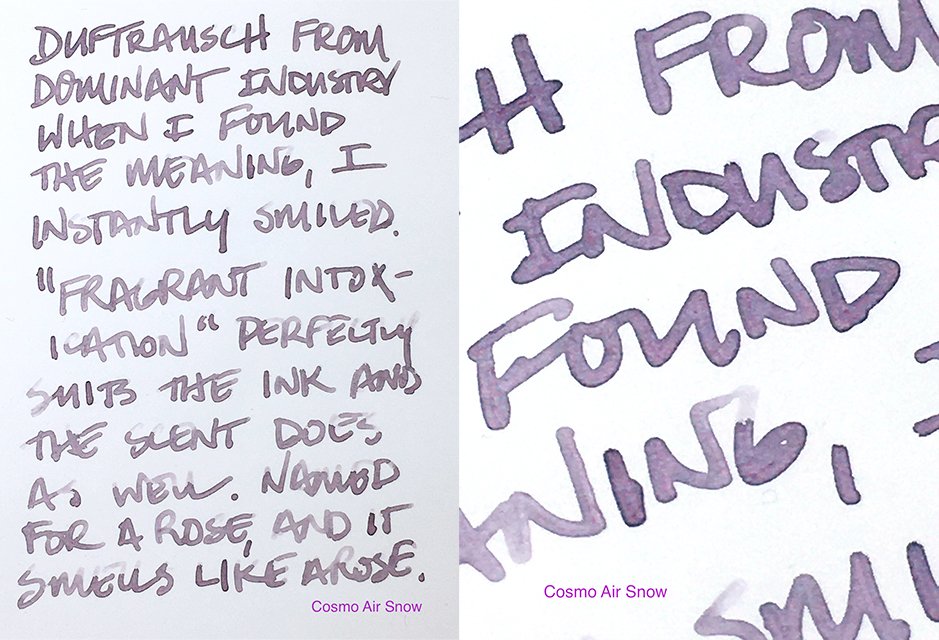 DUFTRAUSCH FROM
DOMINANT INDUSTRY
WHEN I FOUND
THE MEANING, I
INSTANTLY SMILED.
"FRAGRANT INTOX-
ICATION" PERFECTLY
SUITS THE INK AND
THE SCENT DOES
AS WELL. NAMED
FOR A ROSE, AND IT
SMELLS LIKE A ROSE.
Cosmo Air Snow
H FROM
INDUSTR
FOUND
ANING, I
SMIL
Cosmo Air Snow